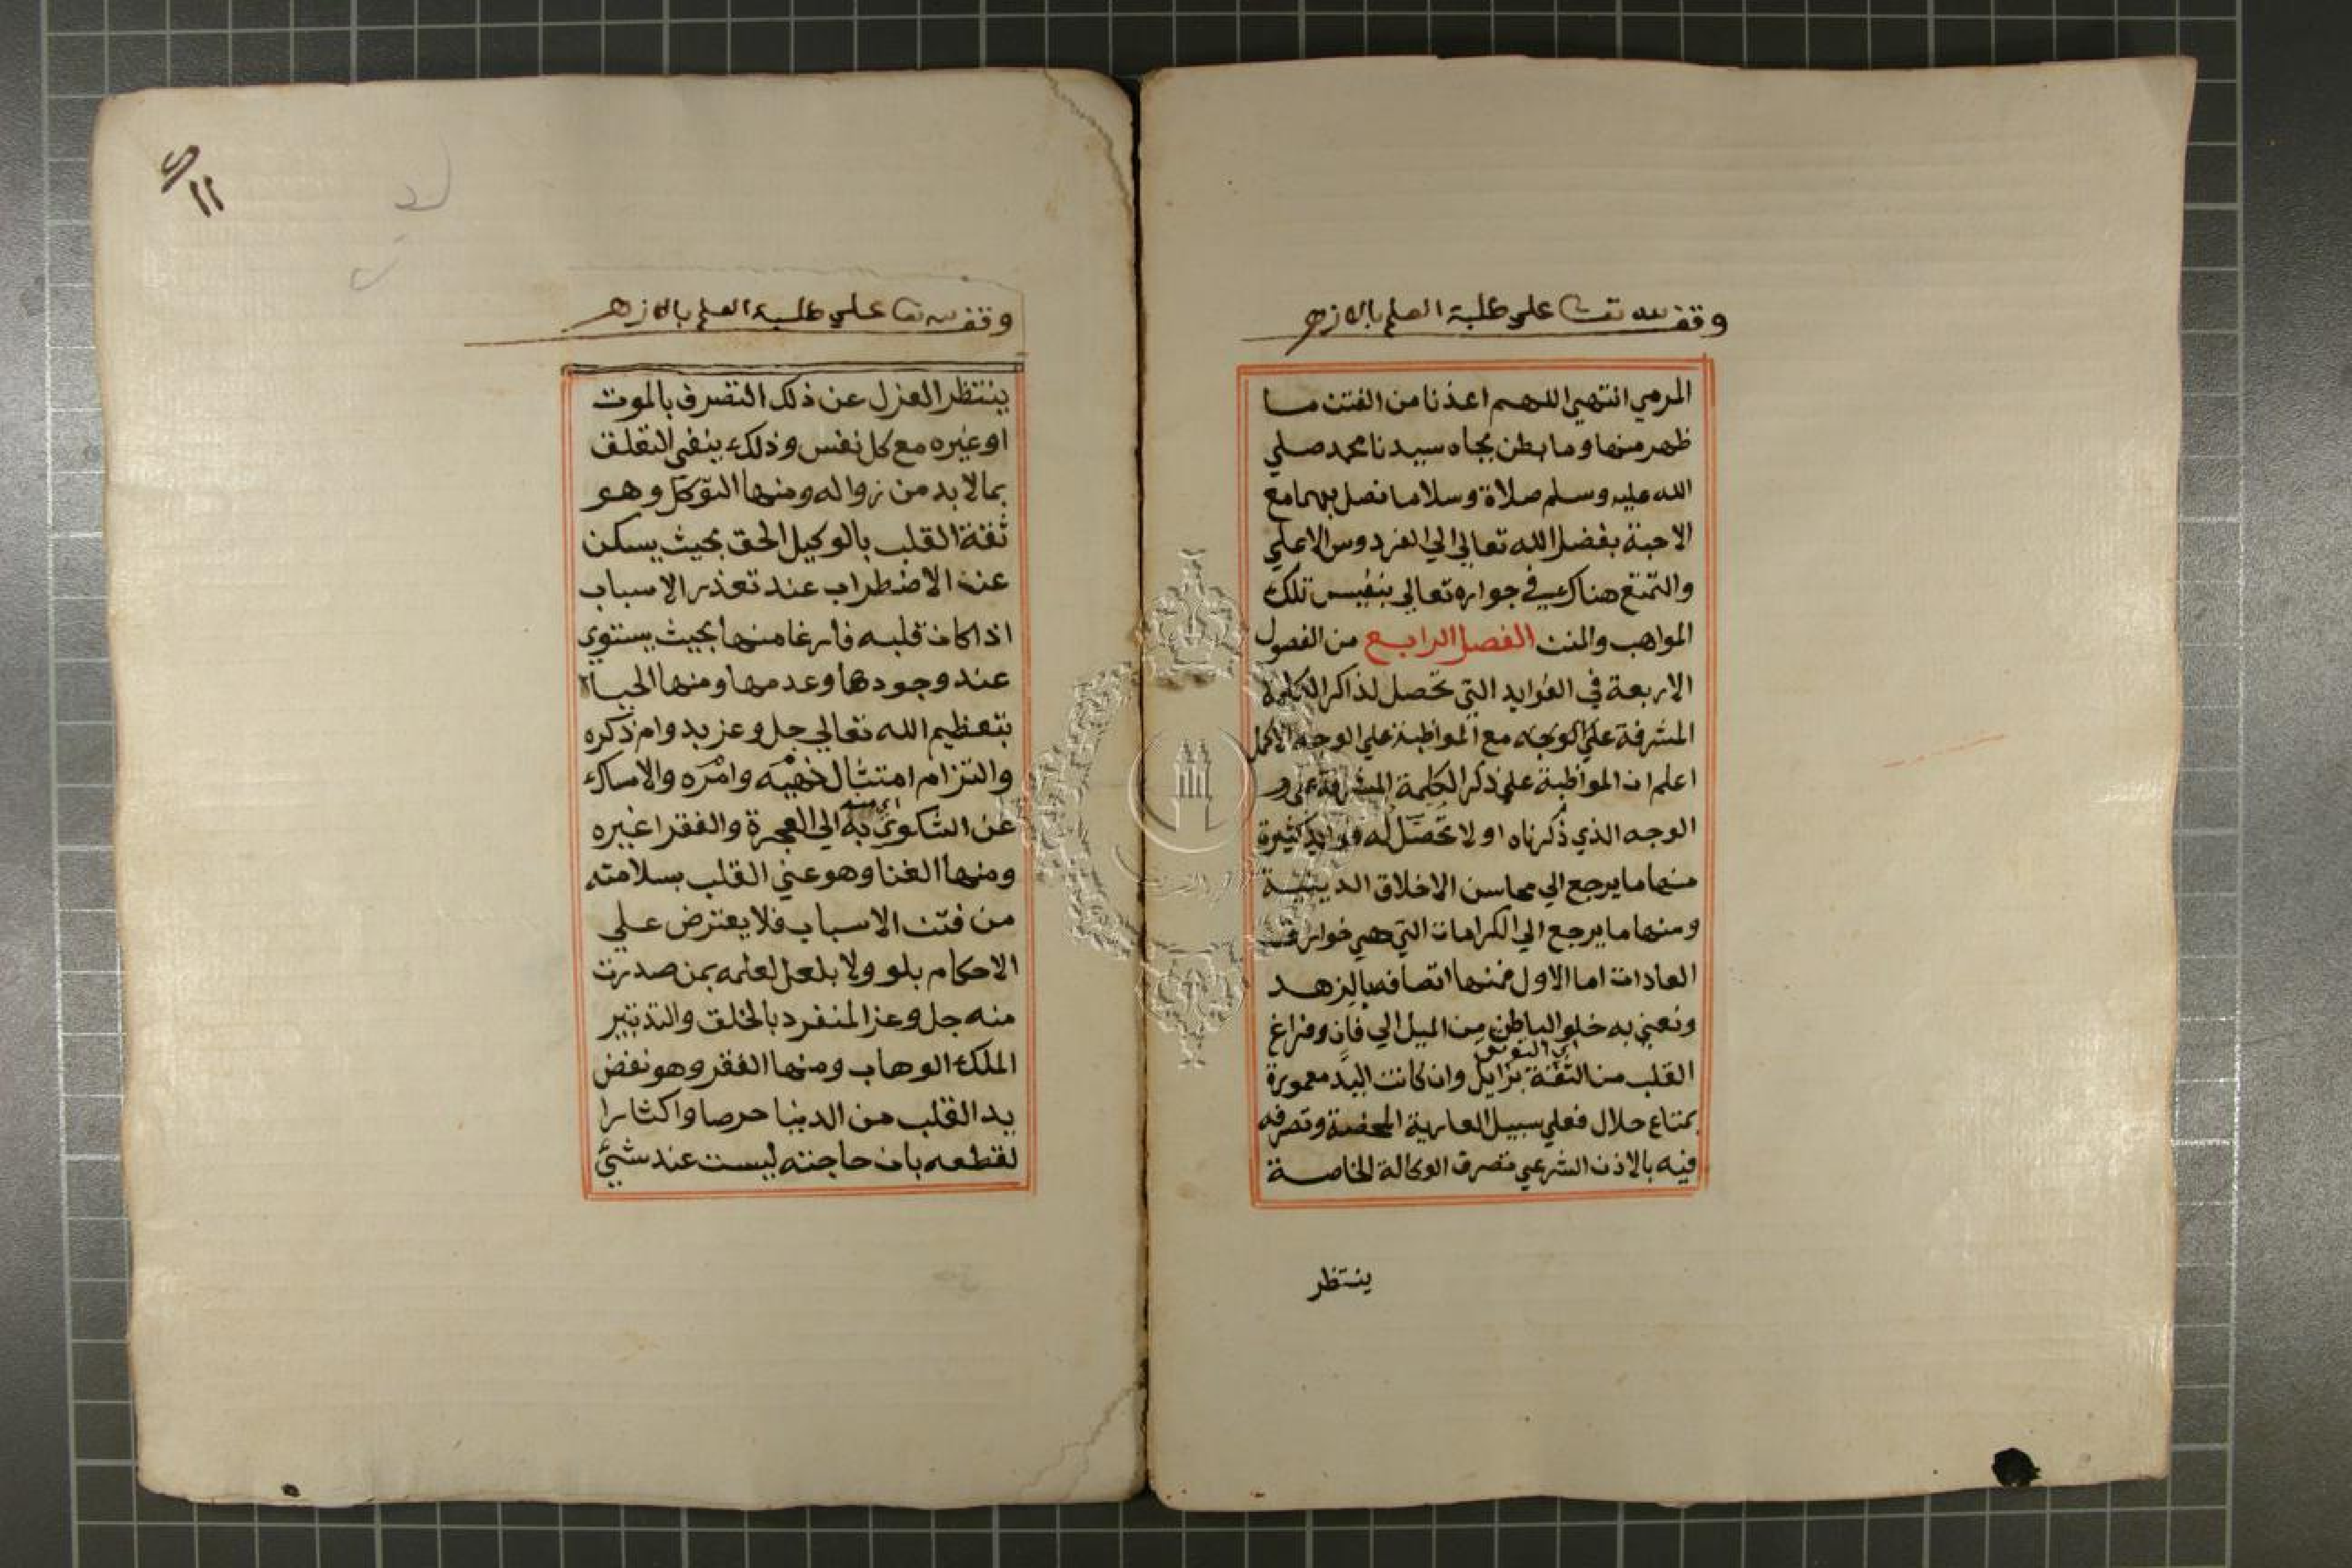 وقف لله تعا علي طلبة العلم بالازهر
المرمي انتهي اللهم اعذنا من الفتن ما
ظهر منها وما بطن بجاه سيدنا محمد صلي
الله عليه وسلم صلاة وسلاما نصل بهما مع
الاحبة بفضل الله تعالي الي الفردوس الاعلي
والتمتع هناك في جواره تعالي بنفيس تلك
المواهب والمنن الفصل الرابع من الفصول
الاربعة في الفوايد التي تحصل لذاكر الكلمة
المشرفة علي الوجه مع المواظبة علي الوجه الاكمل
اعلم ان المواظبة علي ذكر الكلمة المشرفة علي
الوجه الذي ذكرناه اولا تحصل له فوايد كثيرة
منها ما يرجع الي محاسن الاخلاق الدينية
ومنها ما يرجع الي الكرامات التي هي خوارق
العادات اما الاول فمنها اتصافه بالزهد
ونعني به خلو الباطن من الميل الي فان وفراغ
القلب من الثقة بزايل وان كانت اليد معمورة
بمتاع حلال فعلي سبيل العارية المحضة وتصرفه
فيه بالاذن الشرعي تصرف الوكالة الخاصة
ينتظر
١١
وقف لله تعا علي طلبة العلم بالازهر
ينتظر العزل عن ذلك التصرف بالموت
او غيره مع كل نفس وذلك ينفي التعلق
بما لا بد من زواله ومنها التوكل وهو
ثقة القلب بالوكيل الحق بحيث يسكن
عن الاضطراب عند تعذر الاسباب
اذا كان قلبه فارغا منها بحيث يستوي
عند وجودها وعدمها ومنها الحياء
بتعظيم الله تعالي جل وعز بدوام ذكره
والتزام امتثال نهيه وامره والامساك
عن الشكوي به الي العجزة والفقرا غيره
ومنها الغنا وهو غني القلب بسلامته
من فتن الاسباب فلا يعترض علي
الاحكام بلو ولا بلعل لعلمه بمن صدرت
منه جل وعز المنفرد بالخلق والتدبير
الملك الوهاب ومنها الفقر وهو نفض
يد القلب من الدنيا حرصا واكثارا
لقطعه بان حاجته ليست عند شيئ